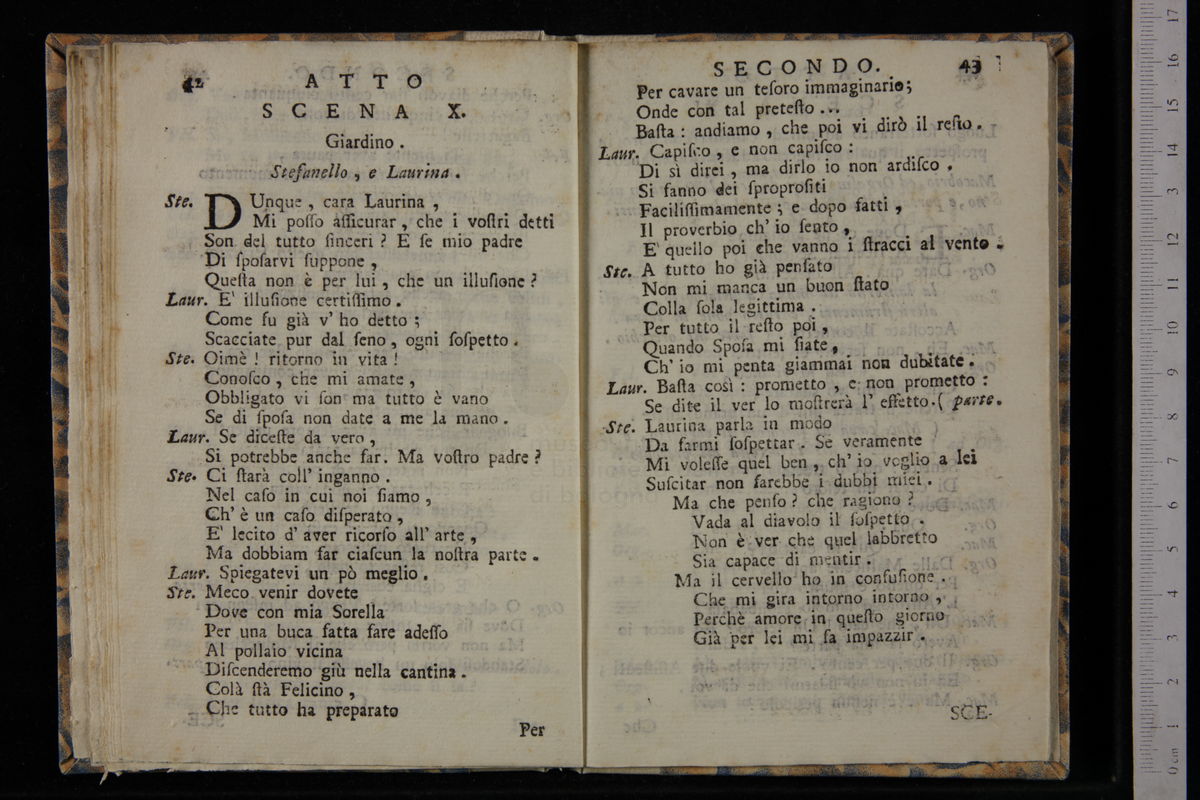 42 ATTO
SCENA X.
Giardino .
Stefanello , e Laurina .
Ste. DUnque , cara Laurina ,
Mi poſſo aſſicurar , che i voſtri detti
Son del tutto ſinceri ? E ſe mio padre
Di ſpoſarvi ſuppone ,
Queſta non è per lui , che un illuſione ?
Laur. E' illuſione certiſſimo .
Come fu già v' ho detto ;
Scacciate pur dal ſeno , ogni ſoſpetto .
Ste. Oimè ! ritorno in vita !
Conoſco , che mi amate ,
Obbligato vi ſon ma tutto è vano
Se di ſpoſa non date a me la mano .
Laur. Se diceſte da vero ,
Si potrebbe anche far. Ma voſtro padre ?
Ste. Ci ſtarà coll' inganno .
Nel caſo in cui noi ſiamo ,
Ch' è un caſo diſperato ,
E' lecito d' aver ricorſo all' arte ,
Ma dobbiam far ciaſcun la noſtra parte .
Laur. Spiegatevi un pò meglio .
Ste. Meco venir dovete
Dove con mia Sorella
Per una buca fatta fare adeſſo
Al pollaio vicina
Diſcenderemo giù nella cantina .
Colà ſtà Felicino ,
Che tutto ha preparato
Per
SECONDO. 43
Per cavare un teſoro immaginario ;
Onde con tal preteſto ...
Baſta : andiamo , che poi vi dirò il reſto .
Laur. Capiſco , e non capiſco :
Di sì direi , ma dirlo io non ardiſco .
Si fanno dei ſproproſiti
Faciliſſimamente ; e dopo fatti ,
Il proverbio ch' io ſento ,
E' quello poi che vanno i ſtracci al vento .
Ste. A tutto ho già penſato
Non mi manca un buon ſtato
Colla ſola legittima .
Per tutto il reſto poi ,
Quando Spoſa mi ſiate ,
Ch' io mi penta giammai non dubitate .
Laur. Baſta così : prometto , e non prometto :
Se dite il ver lo moſtrerà l' effetto . ( parte.
Ste. Laurina parla in modo
Da farmi ſoſpettar . Se veramente
Mi voleſſe quel ben , ch' io voglio a lei
Suſcitar non farebbe i dubbi miei .
Ma che penſo ? che ragiono ?
Vada al diavolo il ſoſpetto .
Non è ver che quel labbretto
Sia capace di mentir .
Ma il cervello ho in confuſione .
Che mi gira intorno intorno ,
Perchè amore in queſto giorno
Già per lei mi fa impazzir .
SCE-